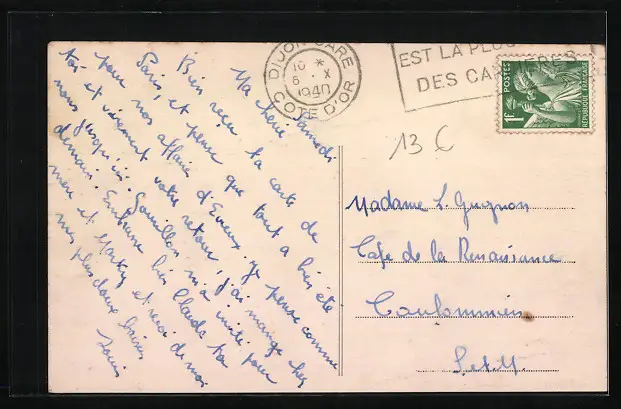 DIJON GARE
16 *
6 . X
1940
COTE D'OR
EST LA PLUS
DES CARRIERES
POSTES
1F
RÉPUBLIQUE FRANÇAISE
13 €
Samedi
Ma chérie
Bien reçu ta carte de
Paris, et pense que tout a bien été
pour nos affaires d'Evreux. Je pense comme
toi et vivement votre retour, j'ai mangé chez
nous jusqu'ici. m'a invité pour
demain. Embrasse bien Claude ta
mère et et reçoi de moi
mes plus doux baisers
Louis
Madame L. Guignon
Café de la Renaissance
Coulommiers
S. et M.